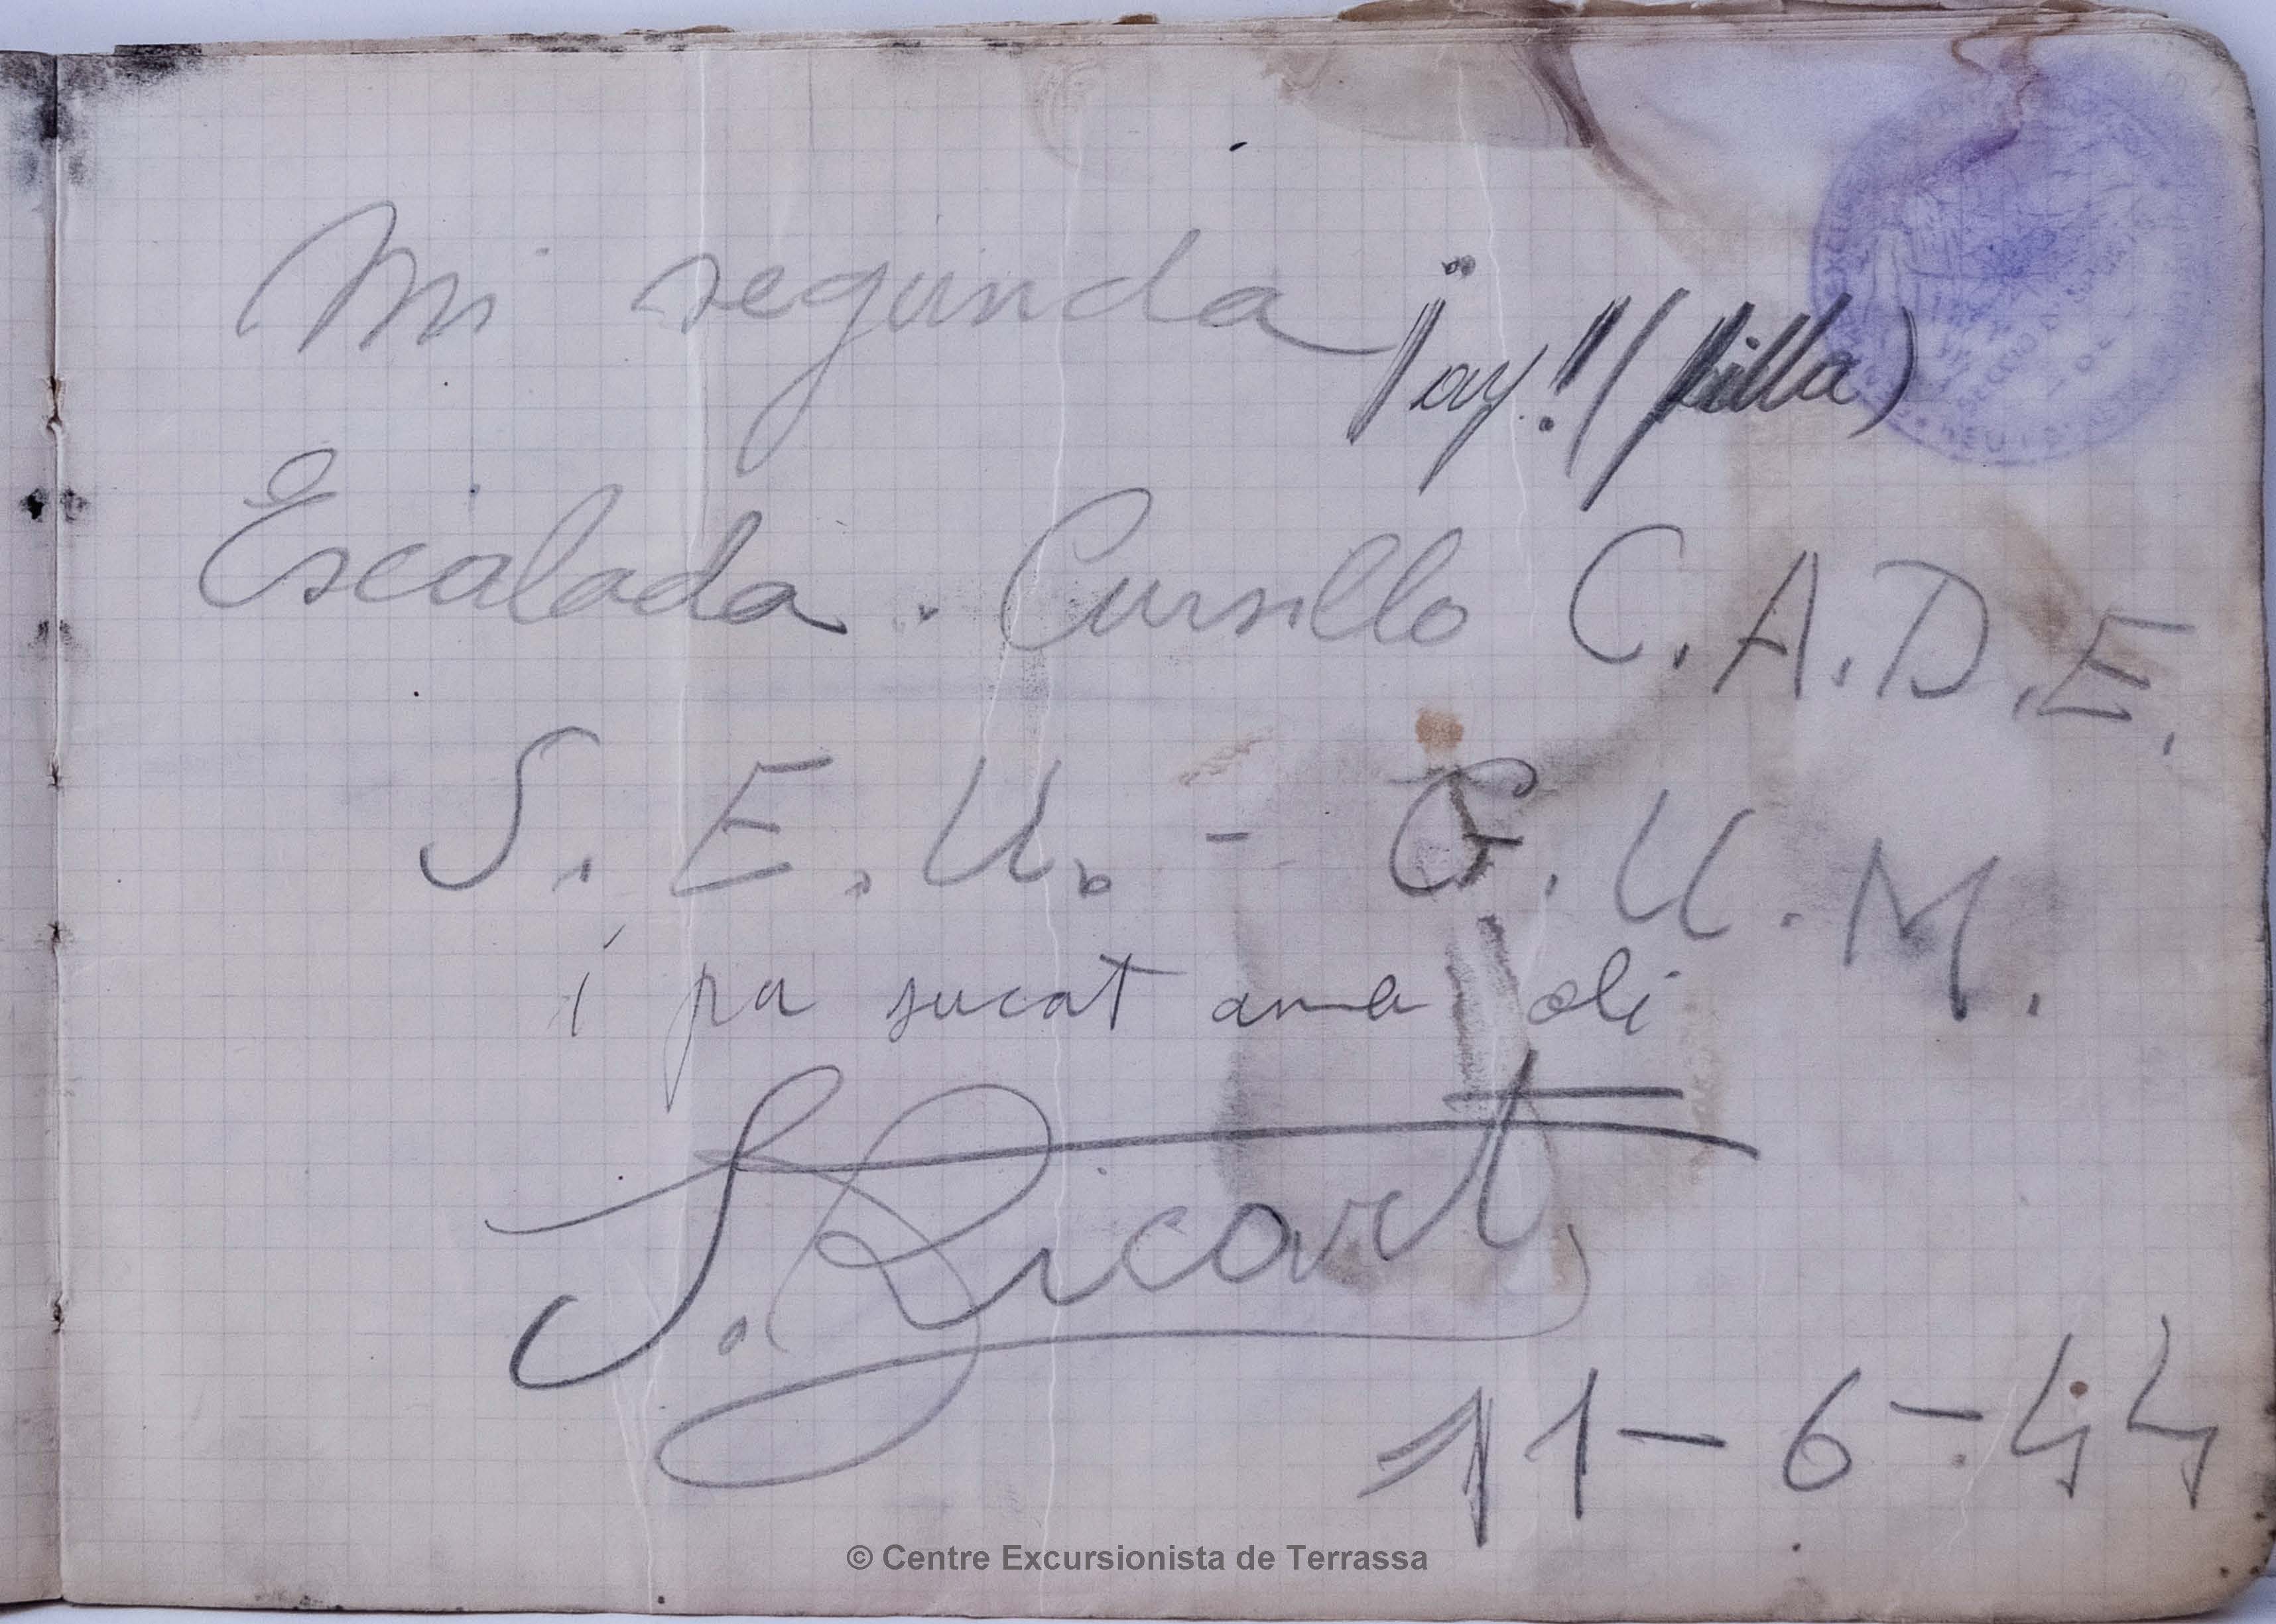 Mi segunda
¡ay!! (pilla)
Escalada. Cursillo C.A.D.E.
S.E.U. - G.U.M.
i pa sucat ama oli
S. Ricart
11-6-44
© Centre Excursionista de Terrassa